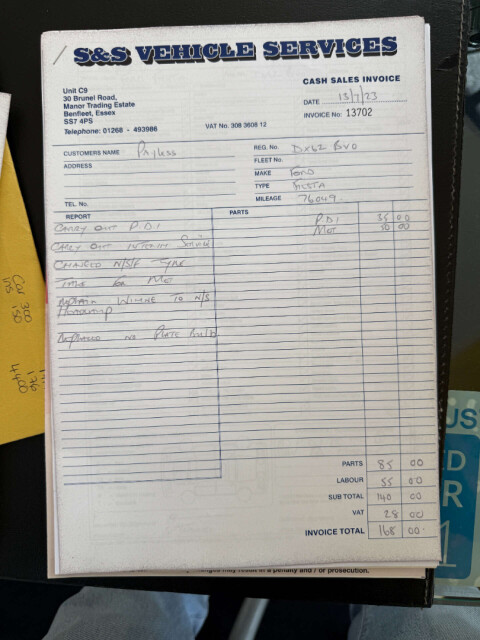 S&S VEHICLE SERVICES
Unit C9
30 Brunel Road,
Manor Trading Estate
Benfleet, Essex
SS7 4PS
Telephone: 01268 - 493986
VAT No. 308 3608 12
CASH SALES INVOICE
DATE 13/7/23
INVOICE No: 13702
CUSTOMERS NAME
ADDRESS
TEL. No.
REG. No. DX62 BVO
FLEET No.
MAKE FORD
TYPE FIESTA
MILEAGE 76049
REPORT
PARTS
CARRY OUT P.D.I
CARRY OUT INTERIM SERVICE
CHANGED N/S/F TYRE
FOR MOT
REPAIR TO N/S
REPLACED NO PLATE BULB
PDI 35 00
MOT 50 00
PARTS 85 00
LABOUR 55 00
SUB TOTAL 140 00
VAT 28 00
INVOICE TOTAL 168 00
may result in a penalty and / or prosecution.
Car 300
ins 150
176
4400
US
D
R
1